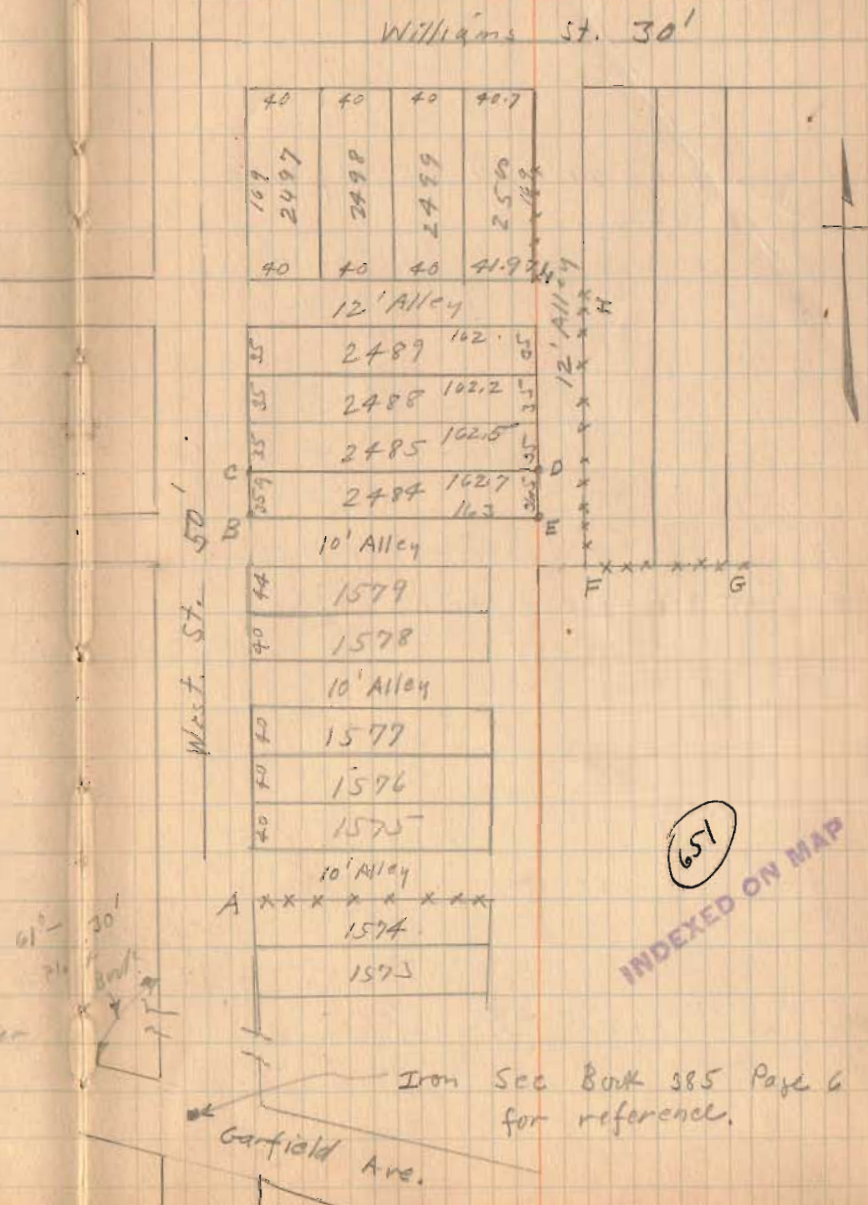 Williams St. 30'
40 40 40 40.7
169 2497 2498 2499 2500 169
40 40 40 41.97
12' Alley
12' Alley
H
35 2489 162. 35
35 2488 162.2 35
35 2485 162.5 35
C D
35.9 2484 162.7 36.5
163
B E
10' Alley
West. St. 50'
44 1579
F G
40 1578
10' Alley
40 1577
40 1576
40 1575
651
INDEXED ON MAP
10' Alley
A
1574
1573
30'
Book
Iron See Book 385 Page 6
for reference.
Garfield Ave.